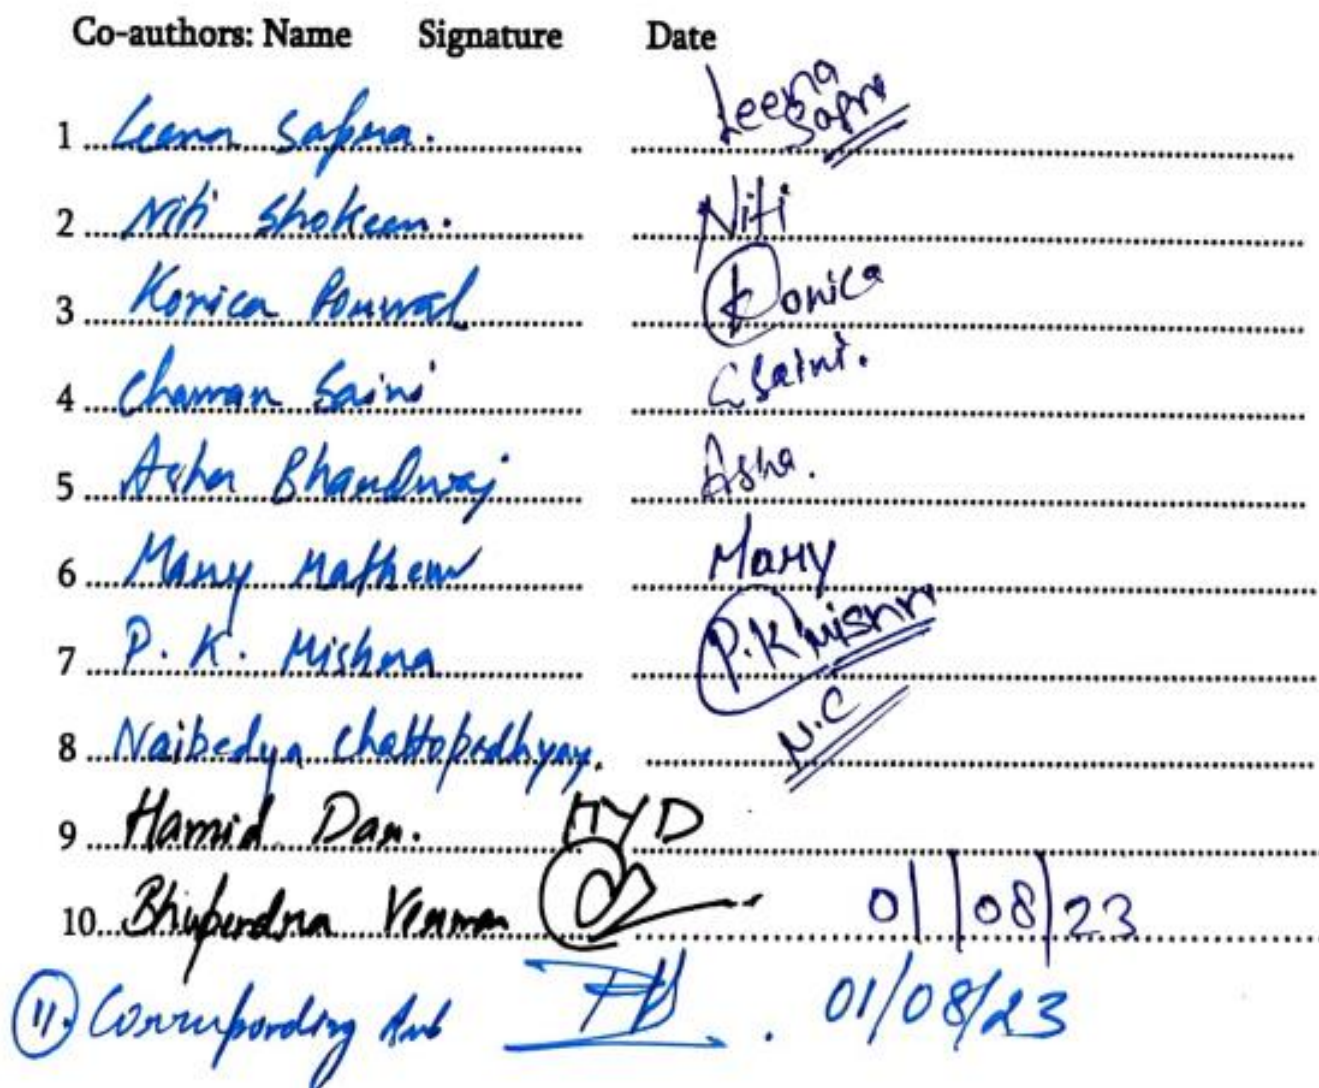 Co-authors: Name Signature Date
1 Leena Sapra. Leena Sapra
2 Niti Shokeen. Niti
3 Konica Porwal Konica
4 Chaman Saini CSaini.
5 Asha Bhardwaj Asha.
6 Mary Mathew Mary
7 P. K. Mishra P.K Mishra
8 Naibedya Chattopadhyay. N.C
9 Hamid Dar. HYD
10 Bhupendra Verma 01/08/23
11. Corresponding 01/08/23